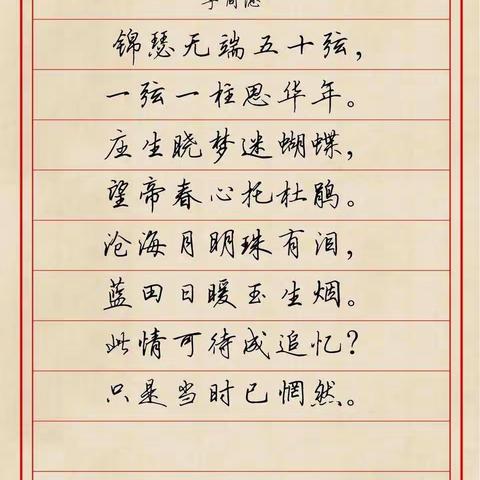 李商隐
锦瑟无端五十弦，
一弦一柱思华年。
庄生晓梦迷蝴蝶，
望帝春心托杜鹃。
沧海月明珠有泪，
蓝田日暖玉生烟。
此情可待成追忆？
只是当时已惘然。